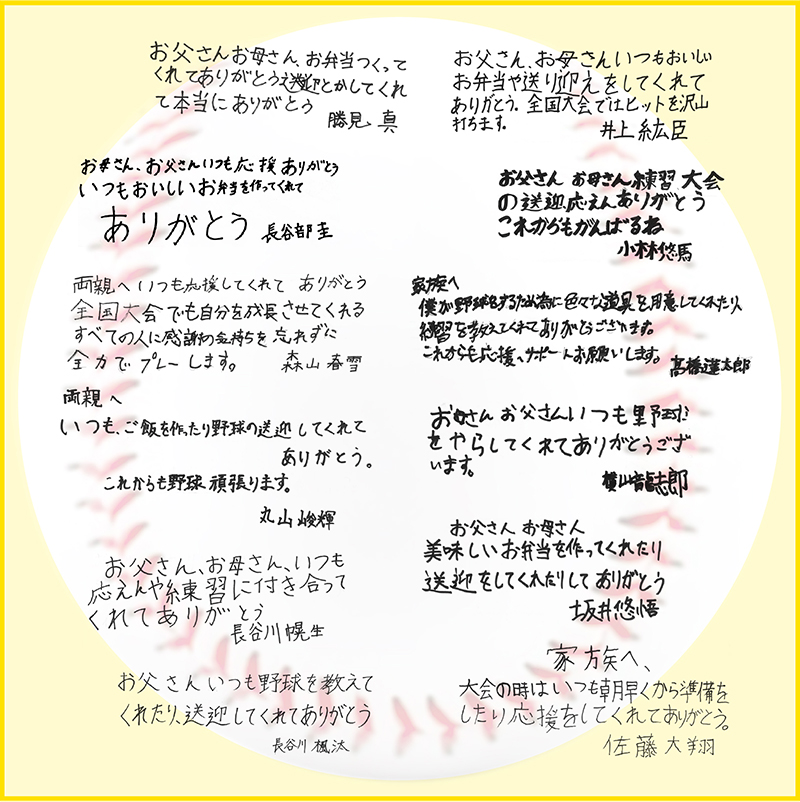 お父さんお母さん、お弁当つくって
くれてありがとう送迎とかしてくれ
て本当にありがとう
勝見 真
お母さん、お父さんいつも応援ありがとう
いつもおいしいお弁当を作ってくれて
ありがとう 長谷部圭
両親へ いつも応援してくれて ありがとう
全国大会でも自分を成長させてくれる
すべての人に感謝の気持ちを忘れずに
全力でプレーします。 森山春雪
両親へ
いつも、ご飯を作ったり野球の送迎してくれて
ありがとう。
これからも野球頑張ります。
丸山峻輝
お父さん、お母さん、いつも
応えんや練習に付き合って
くれてありがとう
長谷川幌生
お父さんいつも野球を教えて
くれたり、送迎してくれてありがとう
長谷川楓汰
お父さん、お母さんいつもおいしい
お弁当や送り迎えをしてくれて
ありがとう。全国大会ではヒットを沢山
打ちます。 井上紘臣
お父さん お母さん練習 大会
の送迎、応えんありがとう
これからもがんばるね
小林悠馬
家族へ
僕が野球をするため為に色々な道具を用意してくれたり、
練習を教えてくれてありがとうございます。
これからも応援、サポートお願いします。 髙橋蓮太郎
お母さん お父さんいつも野球
をやらしてくれてありがとうござ
います。
横山龍志郎
お父さん お母さん
美味しいお弁当を作ってくれたり
送迎をしてくれたりしてありがとう
坂井悠悟
家族へ、
大会の時はいつも朝早くから準備を
したり応援をしてくれてありがとう。
佐藤大翔